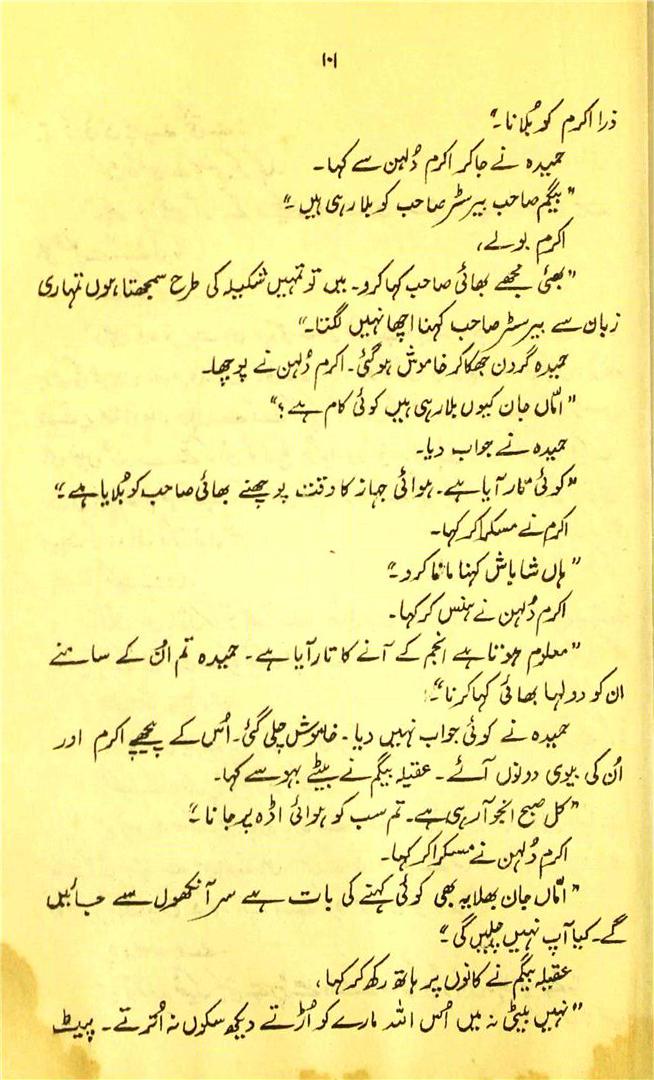 ۱۰۱
ذرا اکرم کو بُلانا۔"
حمیدہ نے جا کر اکرم دُلہن سے کہا۔
"بیگم صاحب بیرسٹر صاحب کو بلا رہی ہیں۔"
اکرم بولے،
"بھئی مجھے بھائی صاحب کہا کرو۔ میں تو تمہیں شکیلہ کی طرح سمجھتا ہوں تمہاری
زبان سے بیرسٹر صاحب کہنا اچھا نہیں لگتا۔"
حمیدہ گردن جھکا کر خاموش ہو گئی۔ اکرم دُلہن نے پوچھا۔
"امّاں جان کیوں بلا رہی ہیں کوئی کام ہے؟"
حمیدہ نے جواب دیا۔
"کوئی تار آیا ہے۔ ہوائی جہاز کا وقت پوچھنے بھائی صاحب کو بُلایا ہے۔"
اکرم نے مسکرا کر کہا۔
"ہاں شاباش کہنا مانا کرو۔"
اکرم دُلہن نے ہنس کر کہا۔
"معلوم ہوتا ہے انجم کے آنے کا تار آیا ہے۔ حمیدہ تم اُن کے سامنے
ان کو دولہا بھائی کہا کرنا۔"
حمیدہ نے کوئی جواب نہیں دیا۔ خاموش چلی گئی۔ اُس کے پیچھے اکرم اور
اُن کی بیوی دونوں آئے۔ عقیلہ بیگم نے بیٹے بہو سے کہا۔
"کل صبح انجو آ رہی ہے۔ تم سب کو ہوائی اڈہ پر جانا۔"
اکرم دُلہن نے مسکرا کر کہا۔
"امّاں جان بھلا یہ بھی کوئی کہنے کی بات ہے سر آنکھوں سے جائیں
گے۔ کیا آپ نہیں چلیں گی۔"
عقیلہ بیگم نے کانوں پر ہاتھ رکھ کر کہا،
"نہیں بیٹی نہ میں اُس اللہ مارے کو اُڑتے دیکھ سکوں نہ اُترتے۔ پیٹ